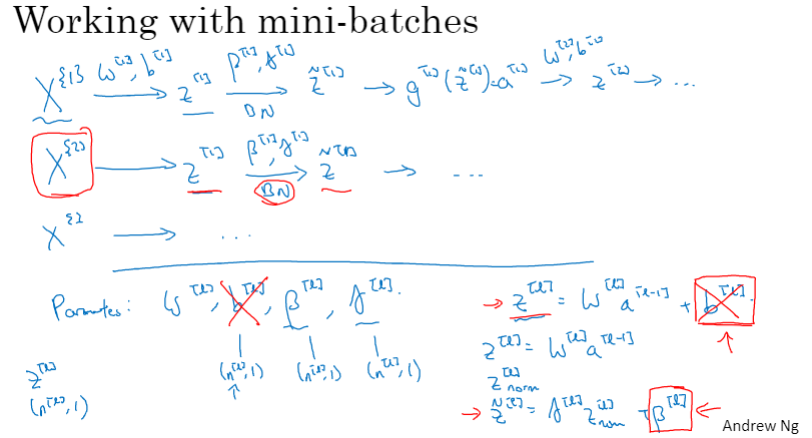 Working with mini-batches
X^{1} W^[1], b^[1] → z^[1] β^[1], γ^[1] → BN z̃^[1] → g^[1](z̃^[1]) = a^[1] W^[2], b^[2] → z^[2] → ...
X^{2} → z^[1] β^[1], γ^[1] → BN z̃^[1] → ...
X^{3} → ...
Parameters: W^[l], b^[l], β^[l], γ^[l].
(n^[l], 1) (n^[l], 1) (n^[l], 1)
z^[l]
(n^[l], 1)
→ z^[l] = W^[l] a^[l-1] + b^[l]
z^[l] = W^[l] a^[l-1]
z^[l]_norm
→ z̃^[l] = γ^[l] z^[l]_norm + β^[l] ←
Andrew Ng